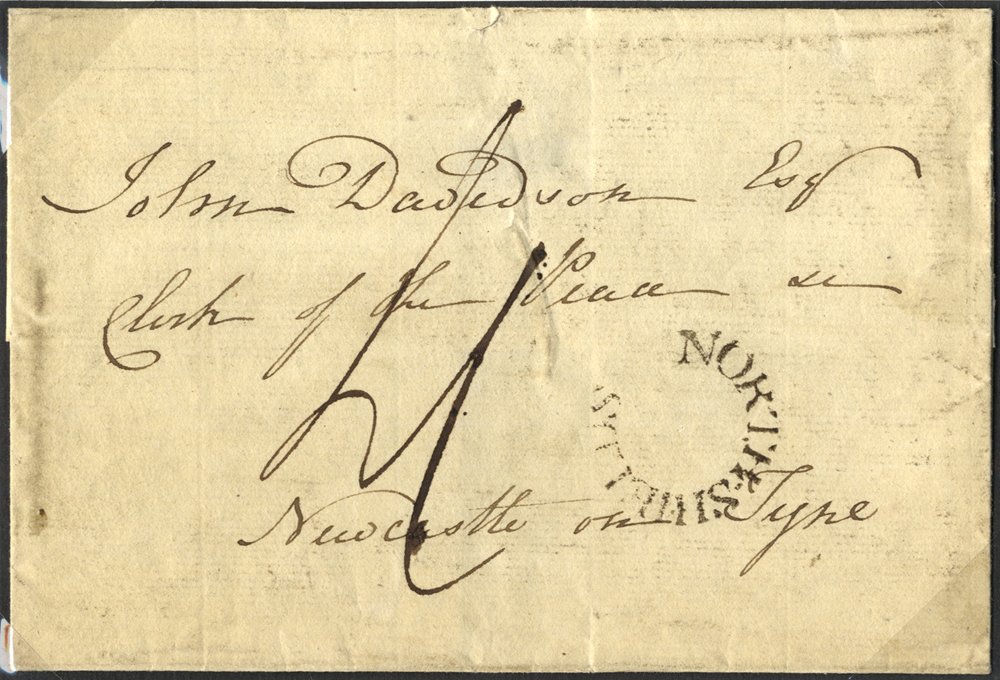 John Davidson Esqr
Clerk of the Peace &c
NORTH SHIELDS
4
Newcastle on Tyne